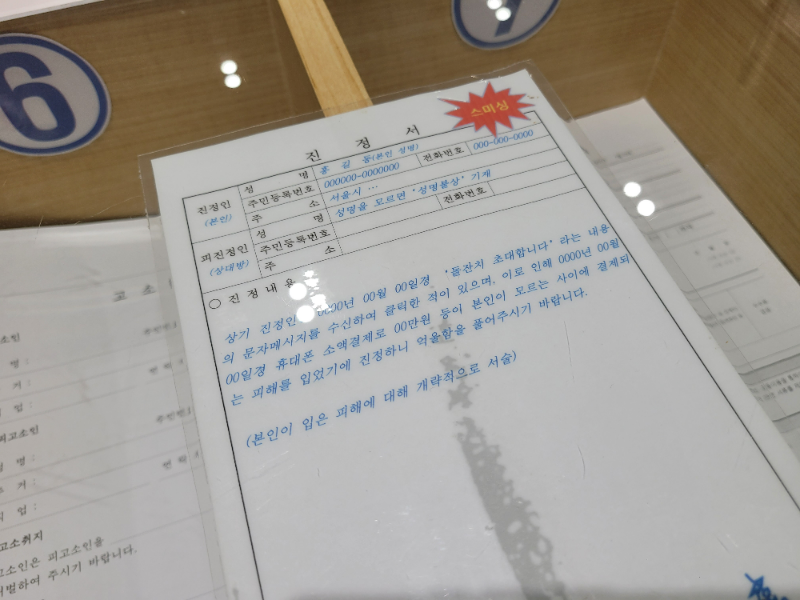 6
7
스미싱
진 정 서
진정인
(본인)
성 명
홍 길 동(본인 성명)
전화번호
000-000-0000
주민등록번호
000000-0000000
주 소
서울시 …
피진정인
(상대방)
성 명
성명을 모르면 '성명불상' 기재
전화번호
주민등록번호
주 소
○ 진 정 내 용
상기 진정인 0000년 00월 00일경 '돌잔치 초대합니다' 라는 내용
의 문자메시지를 수신하여 클릭한 적이 있으며, 이로 인해 0000년 00월
00일경 휴대폰 소액결제로 00만원 등이 본인이 모르는 사이에 결제되
는 피해를 입었기에 진정하니 억울함을 풀어주시기 바랍니다.
(본인이 입은 피해에 대해 개략적으로 서술)
고 소
소인
명 :
거 :
업 :
피고소인
명 :
거 :
업 :
고소취지
고소인은 피고소인을
처벌하여 주시기 바랍니다.